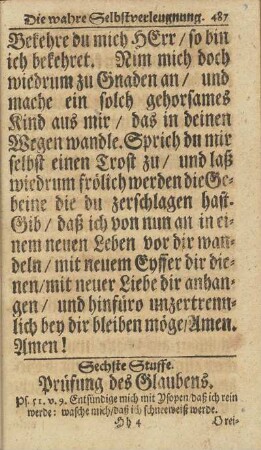 Die wahre Selbstverleugnung. 487
Bekehre du mich HErr / so bin
ich bekehret. Nim mich doch
wiedrum zu Gnaden an / und
mache ein solch gehorsames
Kind aus mir / das in deinen
Wegen wandle. Sprich du mir
selbst einen Trost zu / und laß
wiedrum frölich werden die Ge-
beine die du zerschlagen hast.
Gib / daß ich von nun an in ei-
nem neuen Leben vor dir wan-
deln / mit neuem Eyffer dir die-
nen / mit neuer Liebe dir anhan-
gen / und hinfüro unzertrenn-
lich bey dir bleiben möge / Amen.
Amen!
Sechste Stuffe.
Prüfung des Glaubens.
Ps. 51. v. 9. Entsündige mich mit Ysopen / daß ich rein
werde: wasche mich / daß ich schneeweiß werde.
Hh 4 O rei-